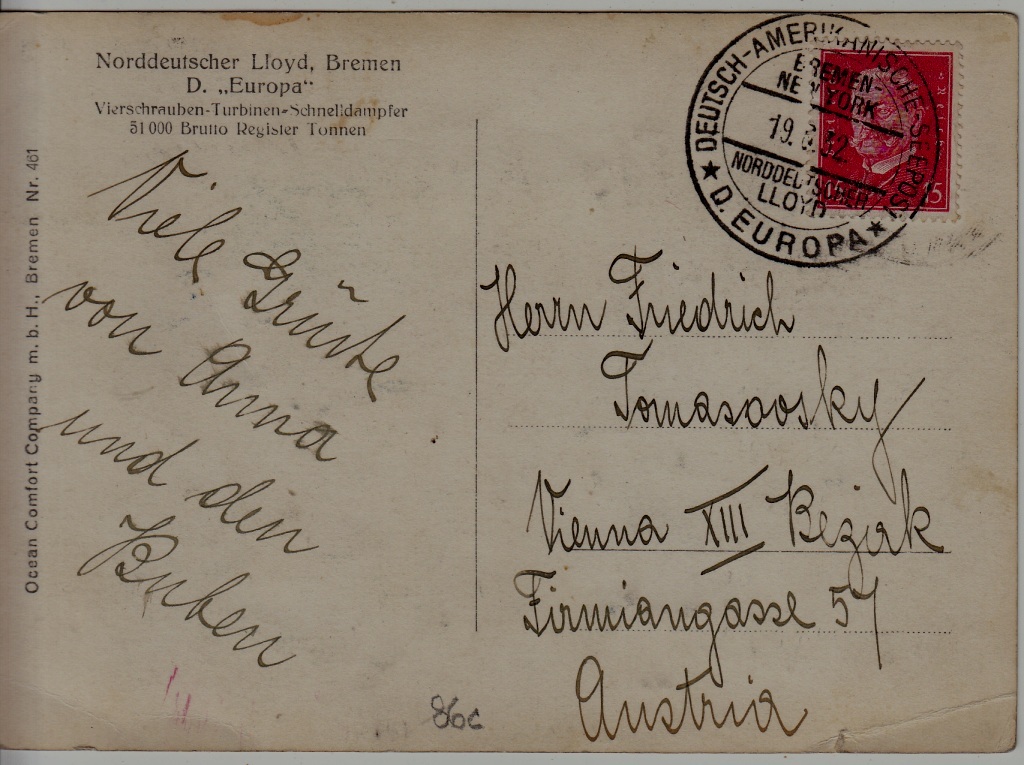 Norddeutscher Lloyd, Bremen
D. „Europa“
Vierschrauben-Turbinen-Schnelldampfer
51000 Brutto Register Tonnen
Ocean Comfort Company m. b. H., Bremen Nr. 461
DEUTSCH-AMERIKANISCHE-SEEPOST
BREMEN-
NEW YORK
NORDDEUTSCHER
LLOYD
★ D. EUROPA ★
15
Viele Grüße
von Anna
und den
Buben
Herrn Friedrich
Tomasovsky
Vienna XIII Bezirk
Firmiangasse 57
Austria